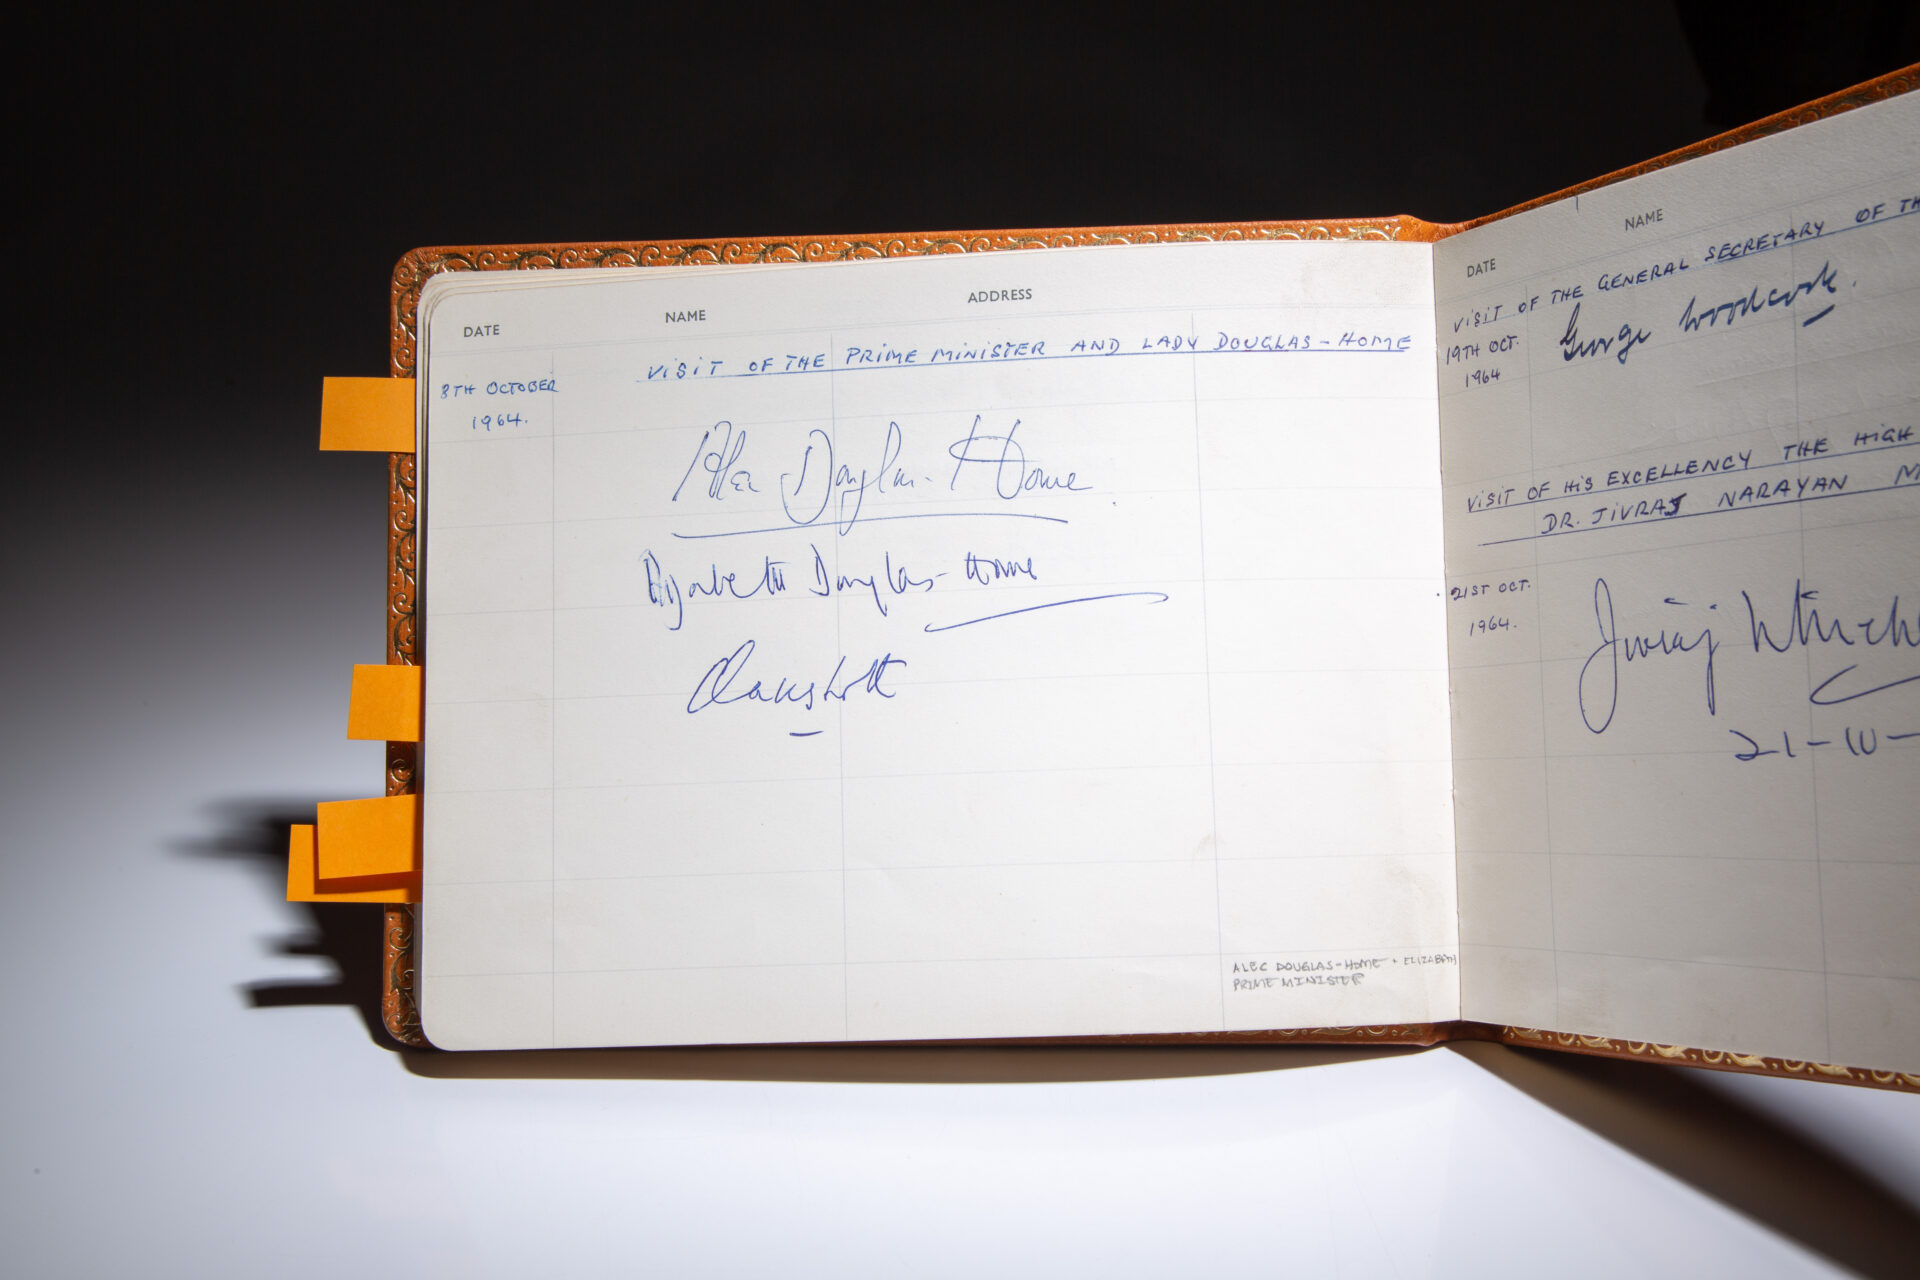 DATE NAME ADDRESS
VISIT OF THE PRIME MINISTER AND LADY DOUGLAS-HOME
8TH OCTOBER
1964.
Alec Douglas-Home
Elizabeth Douglas-Home
ALEC DOUGLAS-HOME + ELIZABETH
PRIME MINISTER
DATE NAME
VISIT OF THE GENERAL SECRETARY OF TH
19TH OCT.
1964
George Woodcock.
VISIT OF HIS EXCELLENCY THE HIGH
DR. JIVRAJ NARAYAN M
21ST OCT.
1964.
Jivraj
21-10-